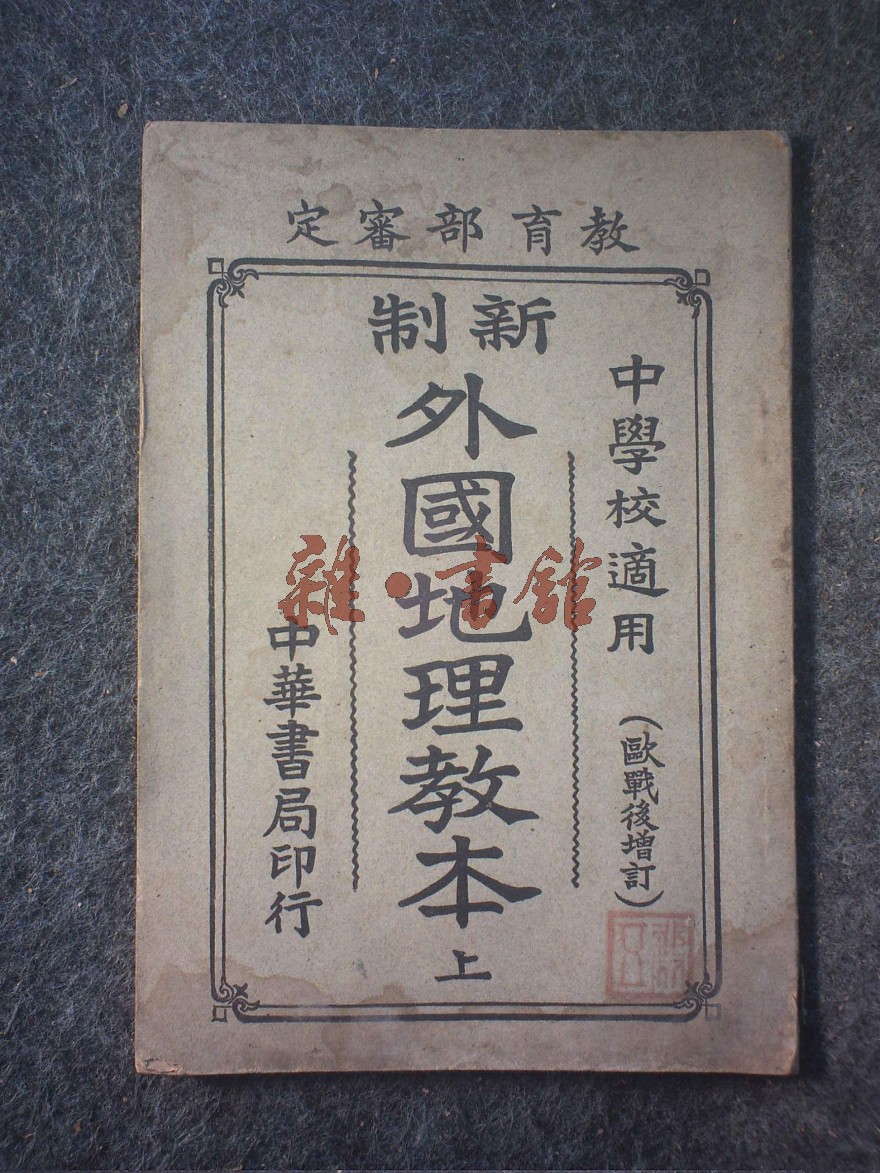 教育部審定
新制
中學校適用
(歐戰後增訂)
外國地理教本 上
中華書局印行
雜·書館